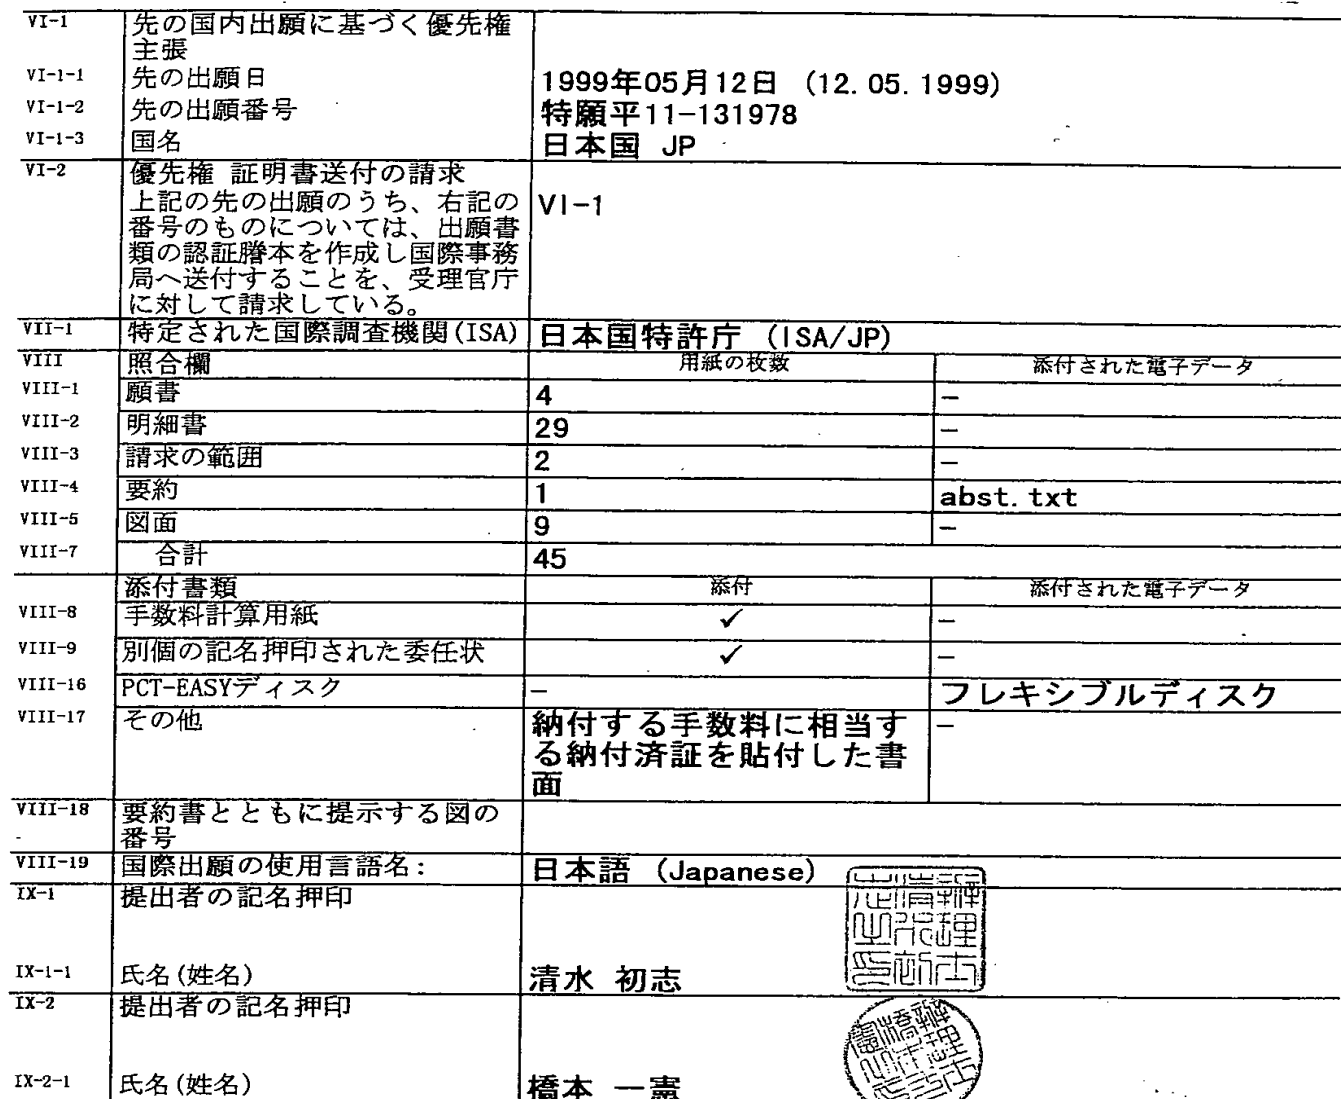 VI-1 先の国内出願に基づく優先権
主張
VI-1-1 先の出願日 1999年05月12日 (12.05.1999)
VI-1-2 先の出願番号 特願平11-131978
VI-1-3 国名 日本国 JP
VI-2 優先権 証明書送付の請求
上記の先の出願のうち、右記の VI-1
番号のものについては、出願書
類の認証謄本を作成し国際事務
局へ送付することを、受理官庁
に対して請求している。
VII-1 特定された国際調査機関(ISA) 日本国特許庁 (ISA/JP)
VIII 照合欄 用紙の枚数 添付された電子データ
VIII-1 願書 4 -
VIII-2 明細書 29 -
VIII-3 請求の範囲 2 -
VIII-4 要約 1 abst.txt
VIII-5 図面 9 -
VIII-7 合計 45
添付書類 添付 添付された電子データ
VIII-8 手数料計算用紙 ✓ -
VIII-9 別個の記名押印された委任状 ✓ -
VIII-16 PCT-EASYディスク - フレキシブルディスク
VIII-17 その他 納付する手数料に相当す -
る納付済証を貼付した書
面
VIII-18 要約書とともに提示する図の
番号
VIII-19 国際出願の使用言語名: 日本語 (Japanese)
IX-1 提出者の記名押印
IX-1-1 氏名(姓名) 清水 初志
IX-2 提出者の記名押印
IX-2-1 氏名(姓名) 橋本 一憲